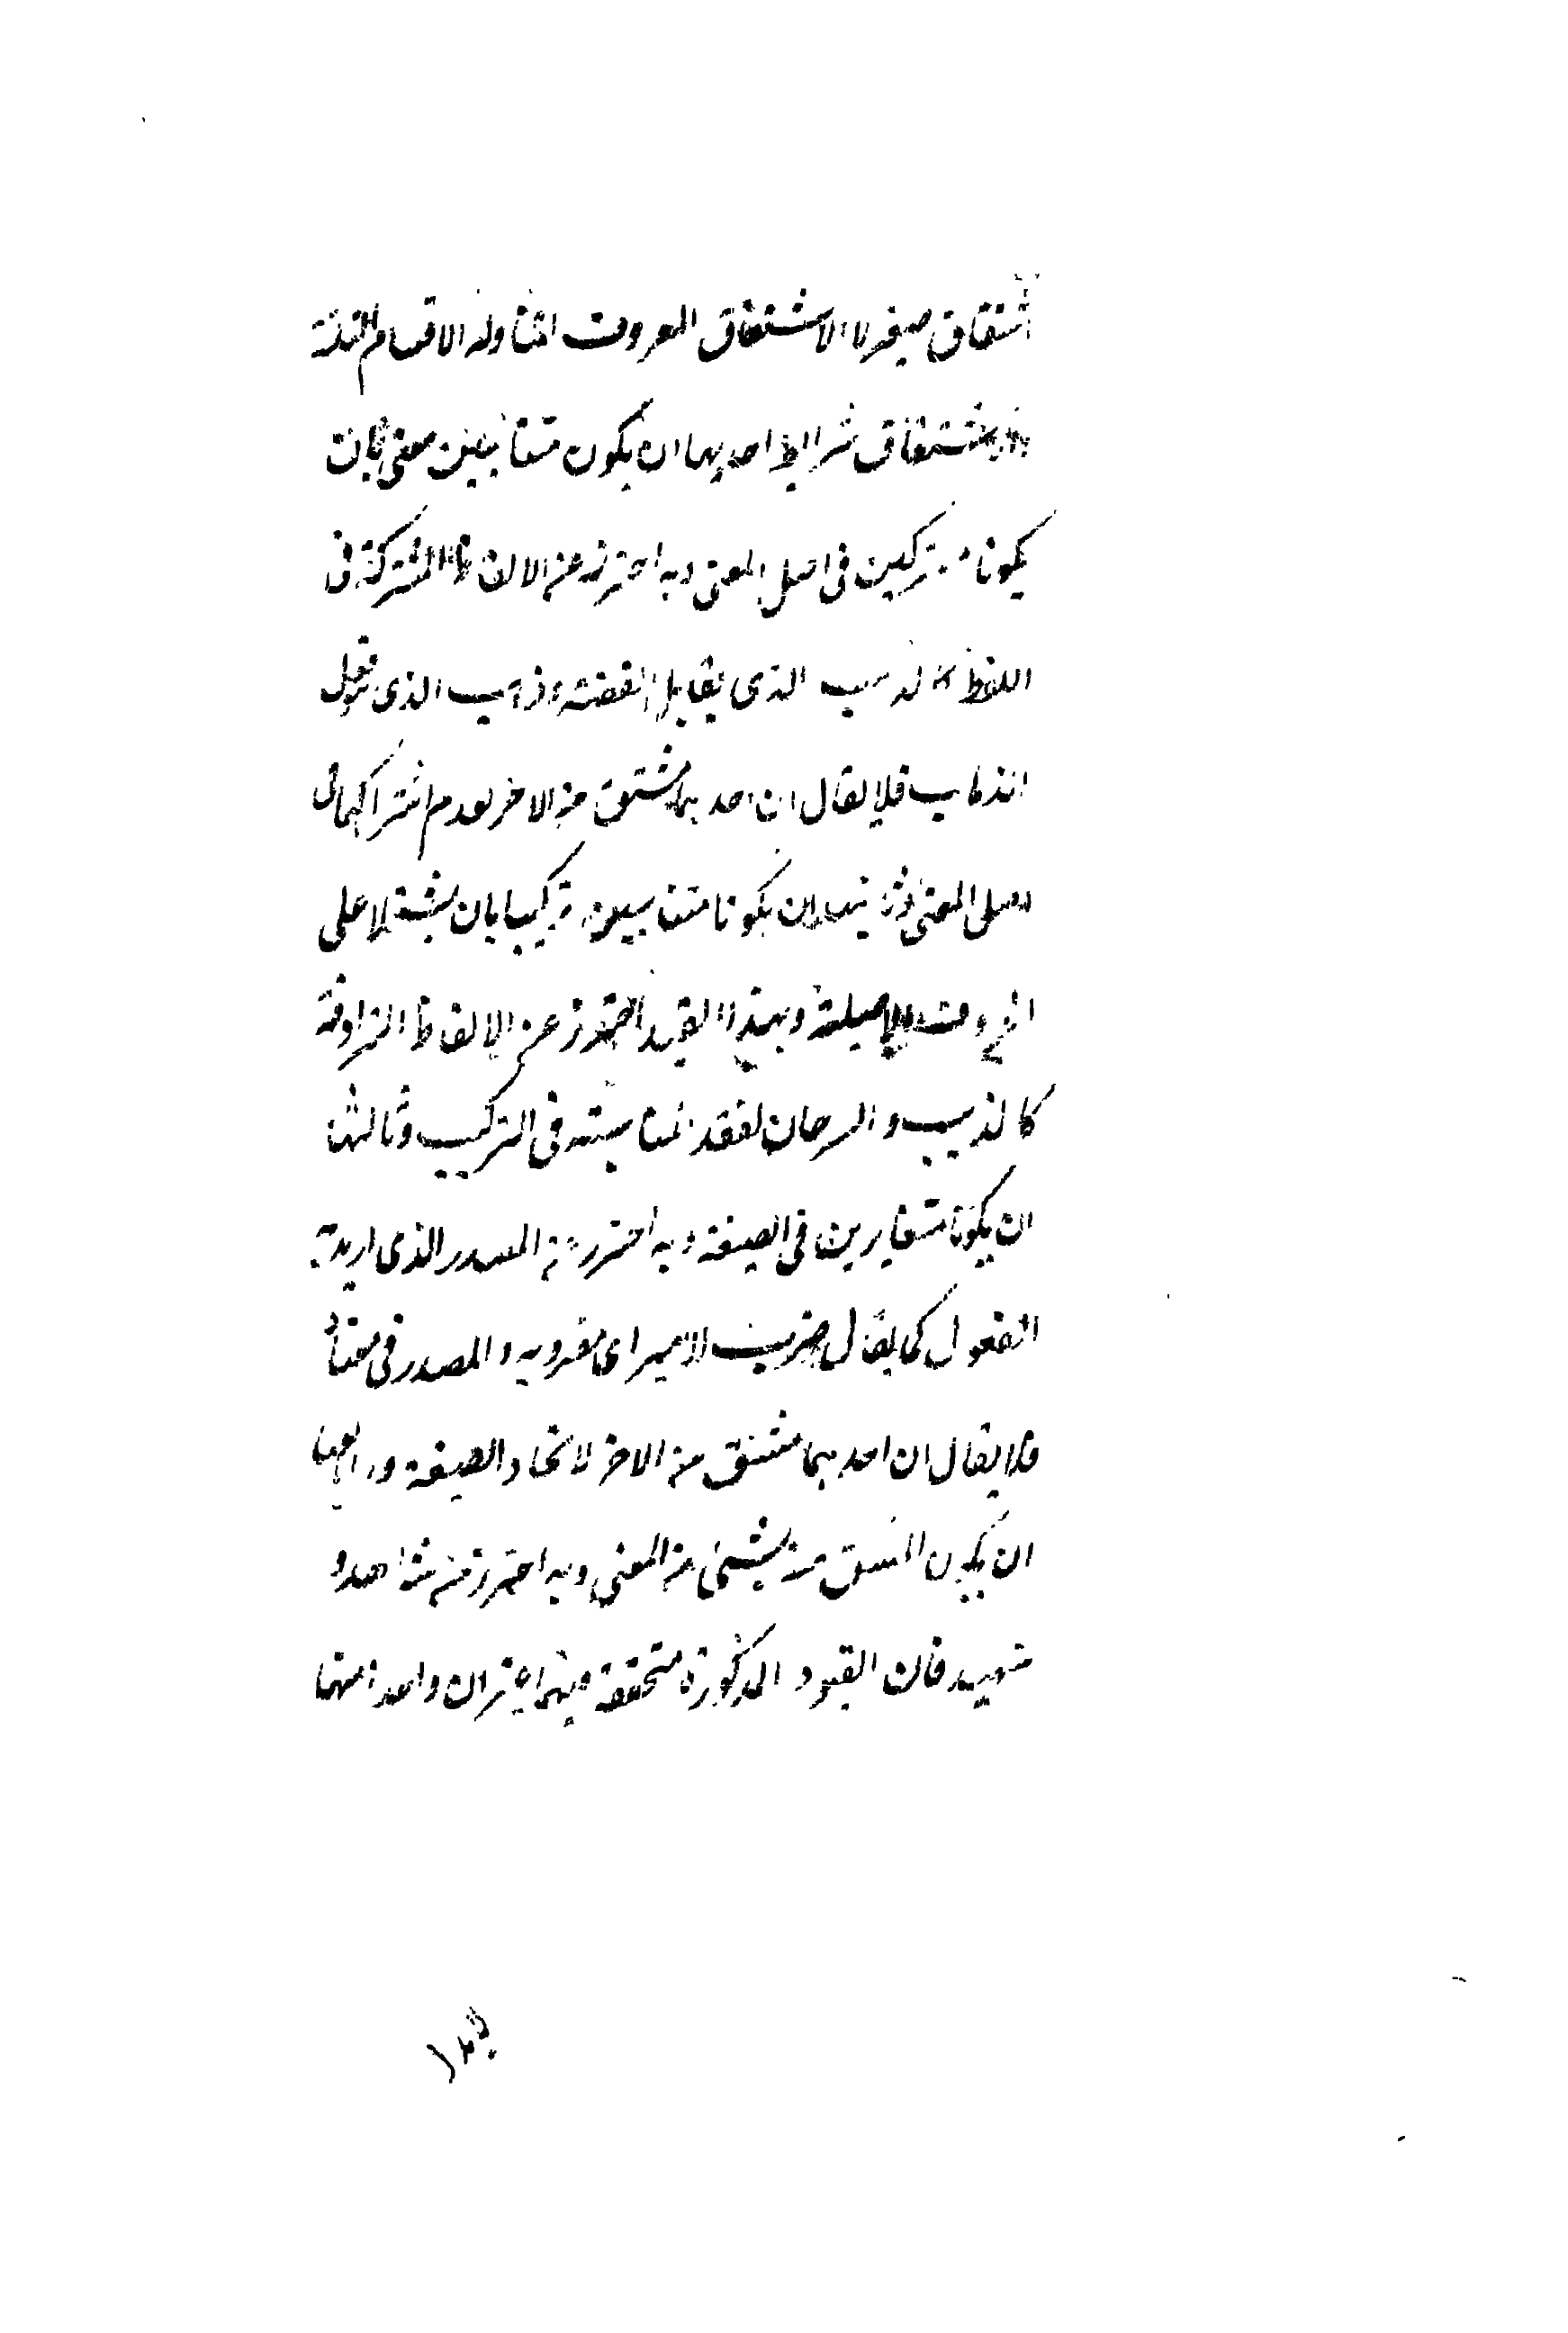 اشتقاق صغير لا الاشتقاق المعروف المتناوله الاقسام الثلثة
وللاشتقاق شرايط احديها ان يكون متناسبين معنى بان
يكونا مشتركين فى اصل المعنى وبه احترز عن الالفاظ المشتركة فى
اللفظ كالذهب الذى يقابل الفضة وذهب الذى من
الذهاب فلا يقال ان احدهما مشتق من الاخر لعدم اشتراكهما فى
اصل المعنى وثانيها ان يكونا متناسبين تركيبا بان يشتملا على
الحروف الاصلية وبهذا القيد احترز عن الالفاظ المترادفة
كالذيب والسرحان لفقد المناسبة فى التركيب وثالثها
ان يكونا متغايرين فى الصيغة وبه احترز عن المصدر الذى اريد به
المفعول كما يقال ضرب الامير اى مضروبه والمصدر فى معناه
فلا يقال ان احدهما مشتق من الاخر لاتحاد الصيغة ورابعها
ان يكون المشتق بشىء من المعنى وبه احترز من شاهد و
شهيد فان القيود المذكورة متحققة فيهما ان واحدا منهما